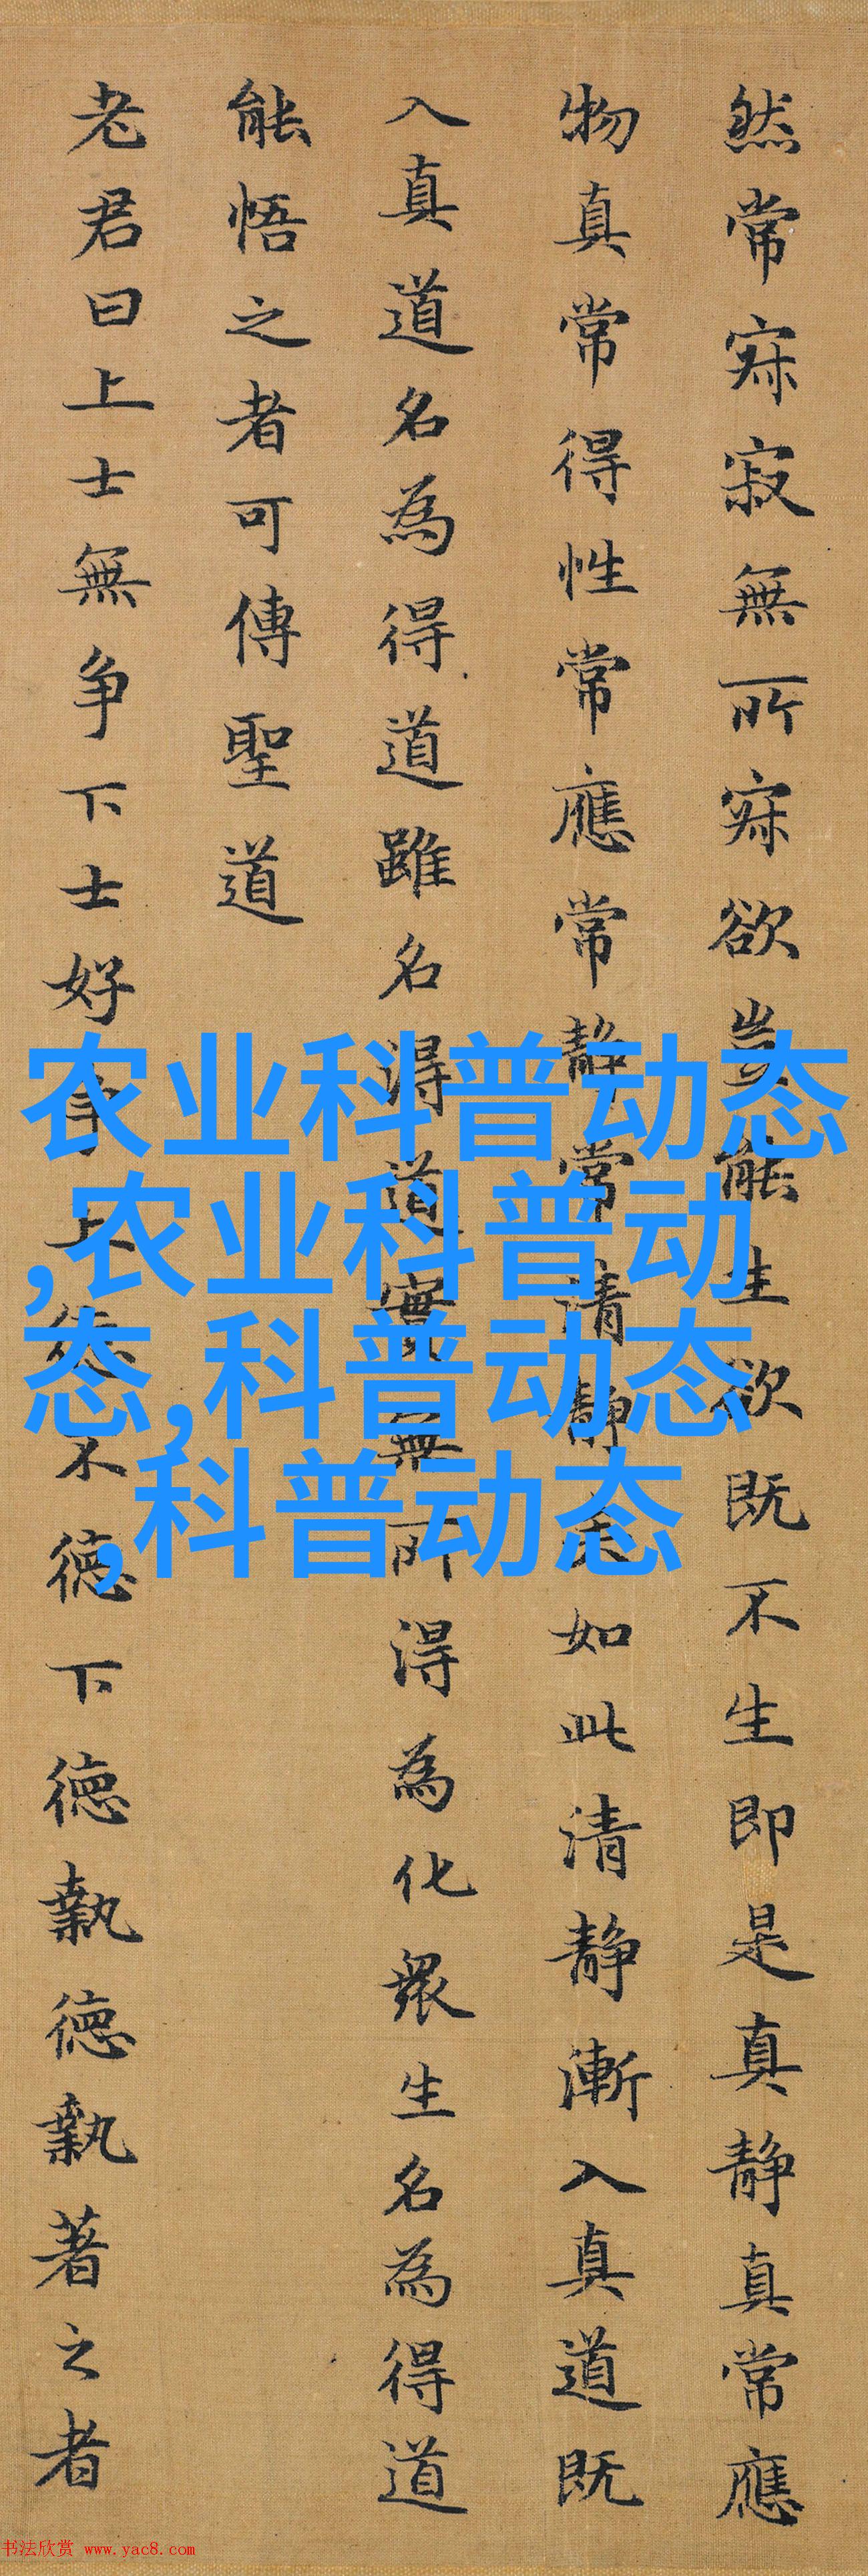 然常寂寂無所寂欲豈能生欲既不生即是真静真常應
物真常得性常應常静常清静矣如此清静漸入真道既
入真道名為得道雖名得道實無所得為化衆生名為得道
能悟之者可傳聖道
老君曰上士無争下士好争上德不德下德執德執著之者
农业科普动态
,农业科普动
态,科普动态
,科普动态
书法欣赏 www.yac8.com